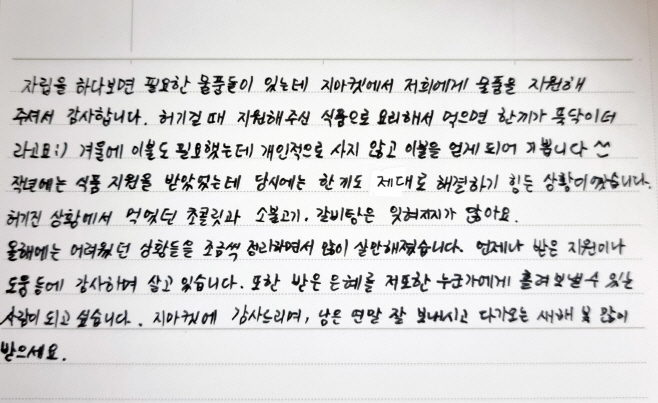 자립을 하다보면 필요한 물품들이 있는데 지마켓에서 저희에게 물품을 지원해
주셔서 감사합니다. 허기질 때 지원해주신 식품으로 요리해서 먹으면 한끼가 뚝딱이더
라고요:) 겨울에 이불도 필요했는데 개인적으로 사지 않고 이불을 얻게 되어 기쁩니다 ^^
작년에는 식품 지원을 받았었는데 당시에는 한끼도 제대로 해결하기 힘든 상황이였습니다.
허기진 상황에서 먹었던 초콜릿과 소불고기, 갈비탕은 잊혀지지가 않아요.
올해에는 어려웠던 상황들을 조금씩 정리하면서 많이 살만해졌습니다. 언제나 받은 지원이나
도움등에 감사하며 살고 있습니다. 또한 받은 은혜를 저또한 누군가에게 흘려보낼 수 있는
사람이 되고 싶습니다. 지마켓에 감사드리며, 남은 연말 잘 보내시고 다가오는 새해 복 많이
받으세요.